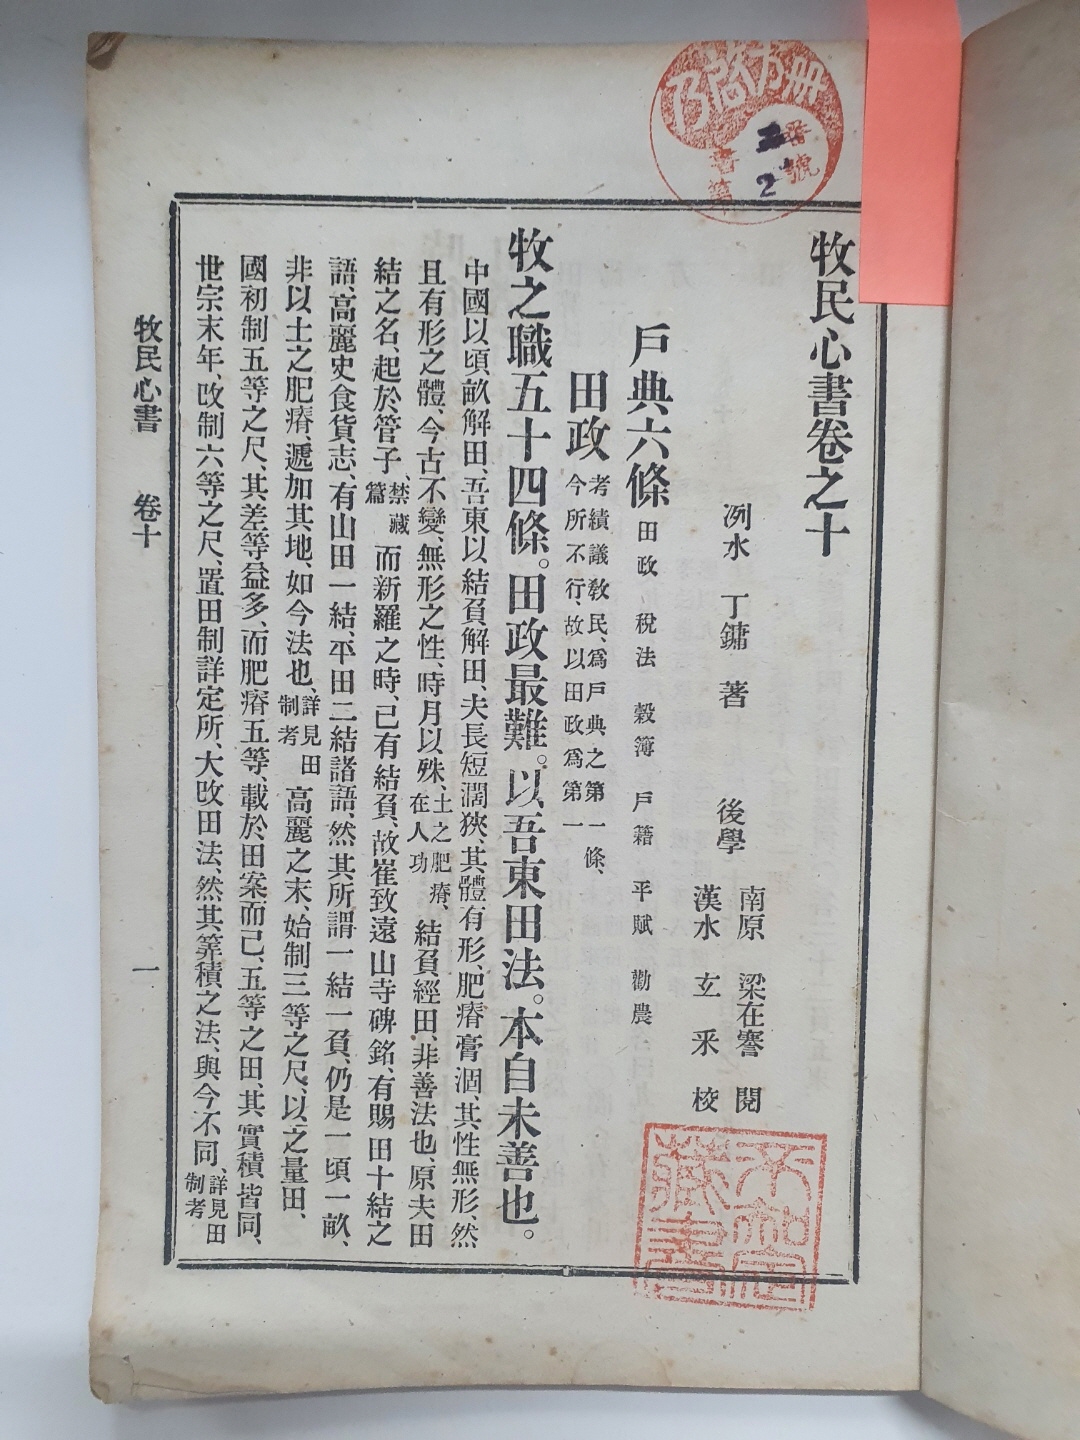 牧民心書卷之十
洌水 丁鏞 著
後學
南原 梁在謇 閱
漢水 玄采 校
戶典六條 田政 稅法 穀簿 戶籍 平賦 勸農
田政 考績議敎民、爲戶典之第一條、
今所不行、故以田政爲第一
牧之職五十四條。田政最難。以吾東田法。本自未善也。
中國以頃畝解田、吾東以結負解田、夫長短濶狹、其體有形、肥瘠膏涸、其性無形、然
且有形之體、今古不變、無形之性、時月以殊、土之肥瘠、在人功 結負經田、非善法也、原夫田
結之名、起於管子、禁藏篇 而新羅之時、已有結負、故崔致遠山寺碑銘、有賜田十結之
語、高麗史食貨志、有山田一結、平田二結諸語、然其所謂一結一負、仍是一頃一畝、
非以土之肥瘠、遞加其地、如今法也、詳見田制考 高麗之末、始制三等之尺、以之量田、
國初制五等之尺、其差等益多、而肥瘠五等、載於田案而已、五等之田、其實積皆同、
世宗末年、改制六等之尺、置田制詳定所、大改田法、然其筭積之法、與今不同、詳見田制考
牧民心書 卷十 一
乃啓方册
番號
書第
2
藏書